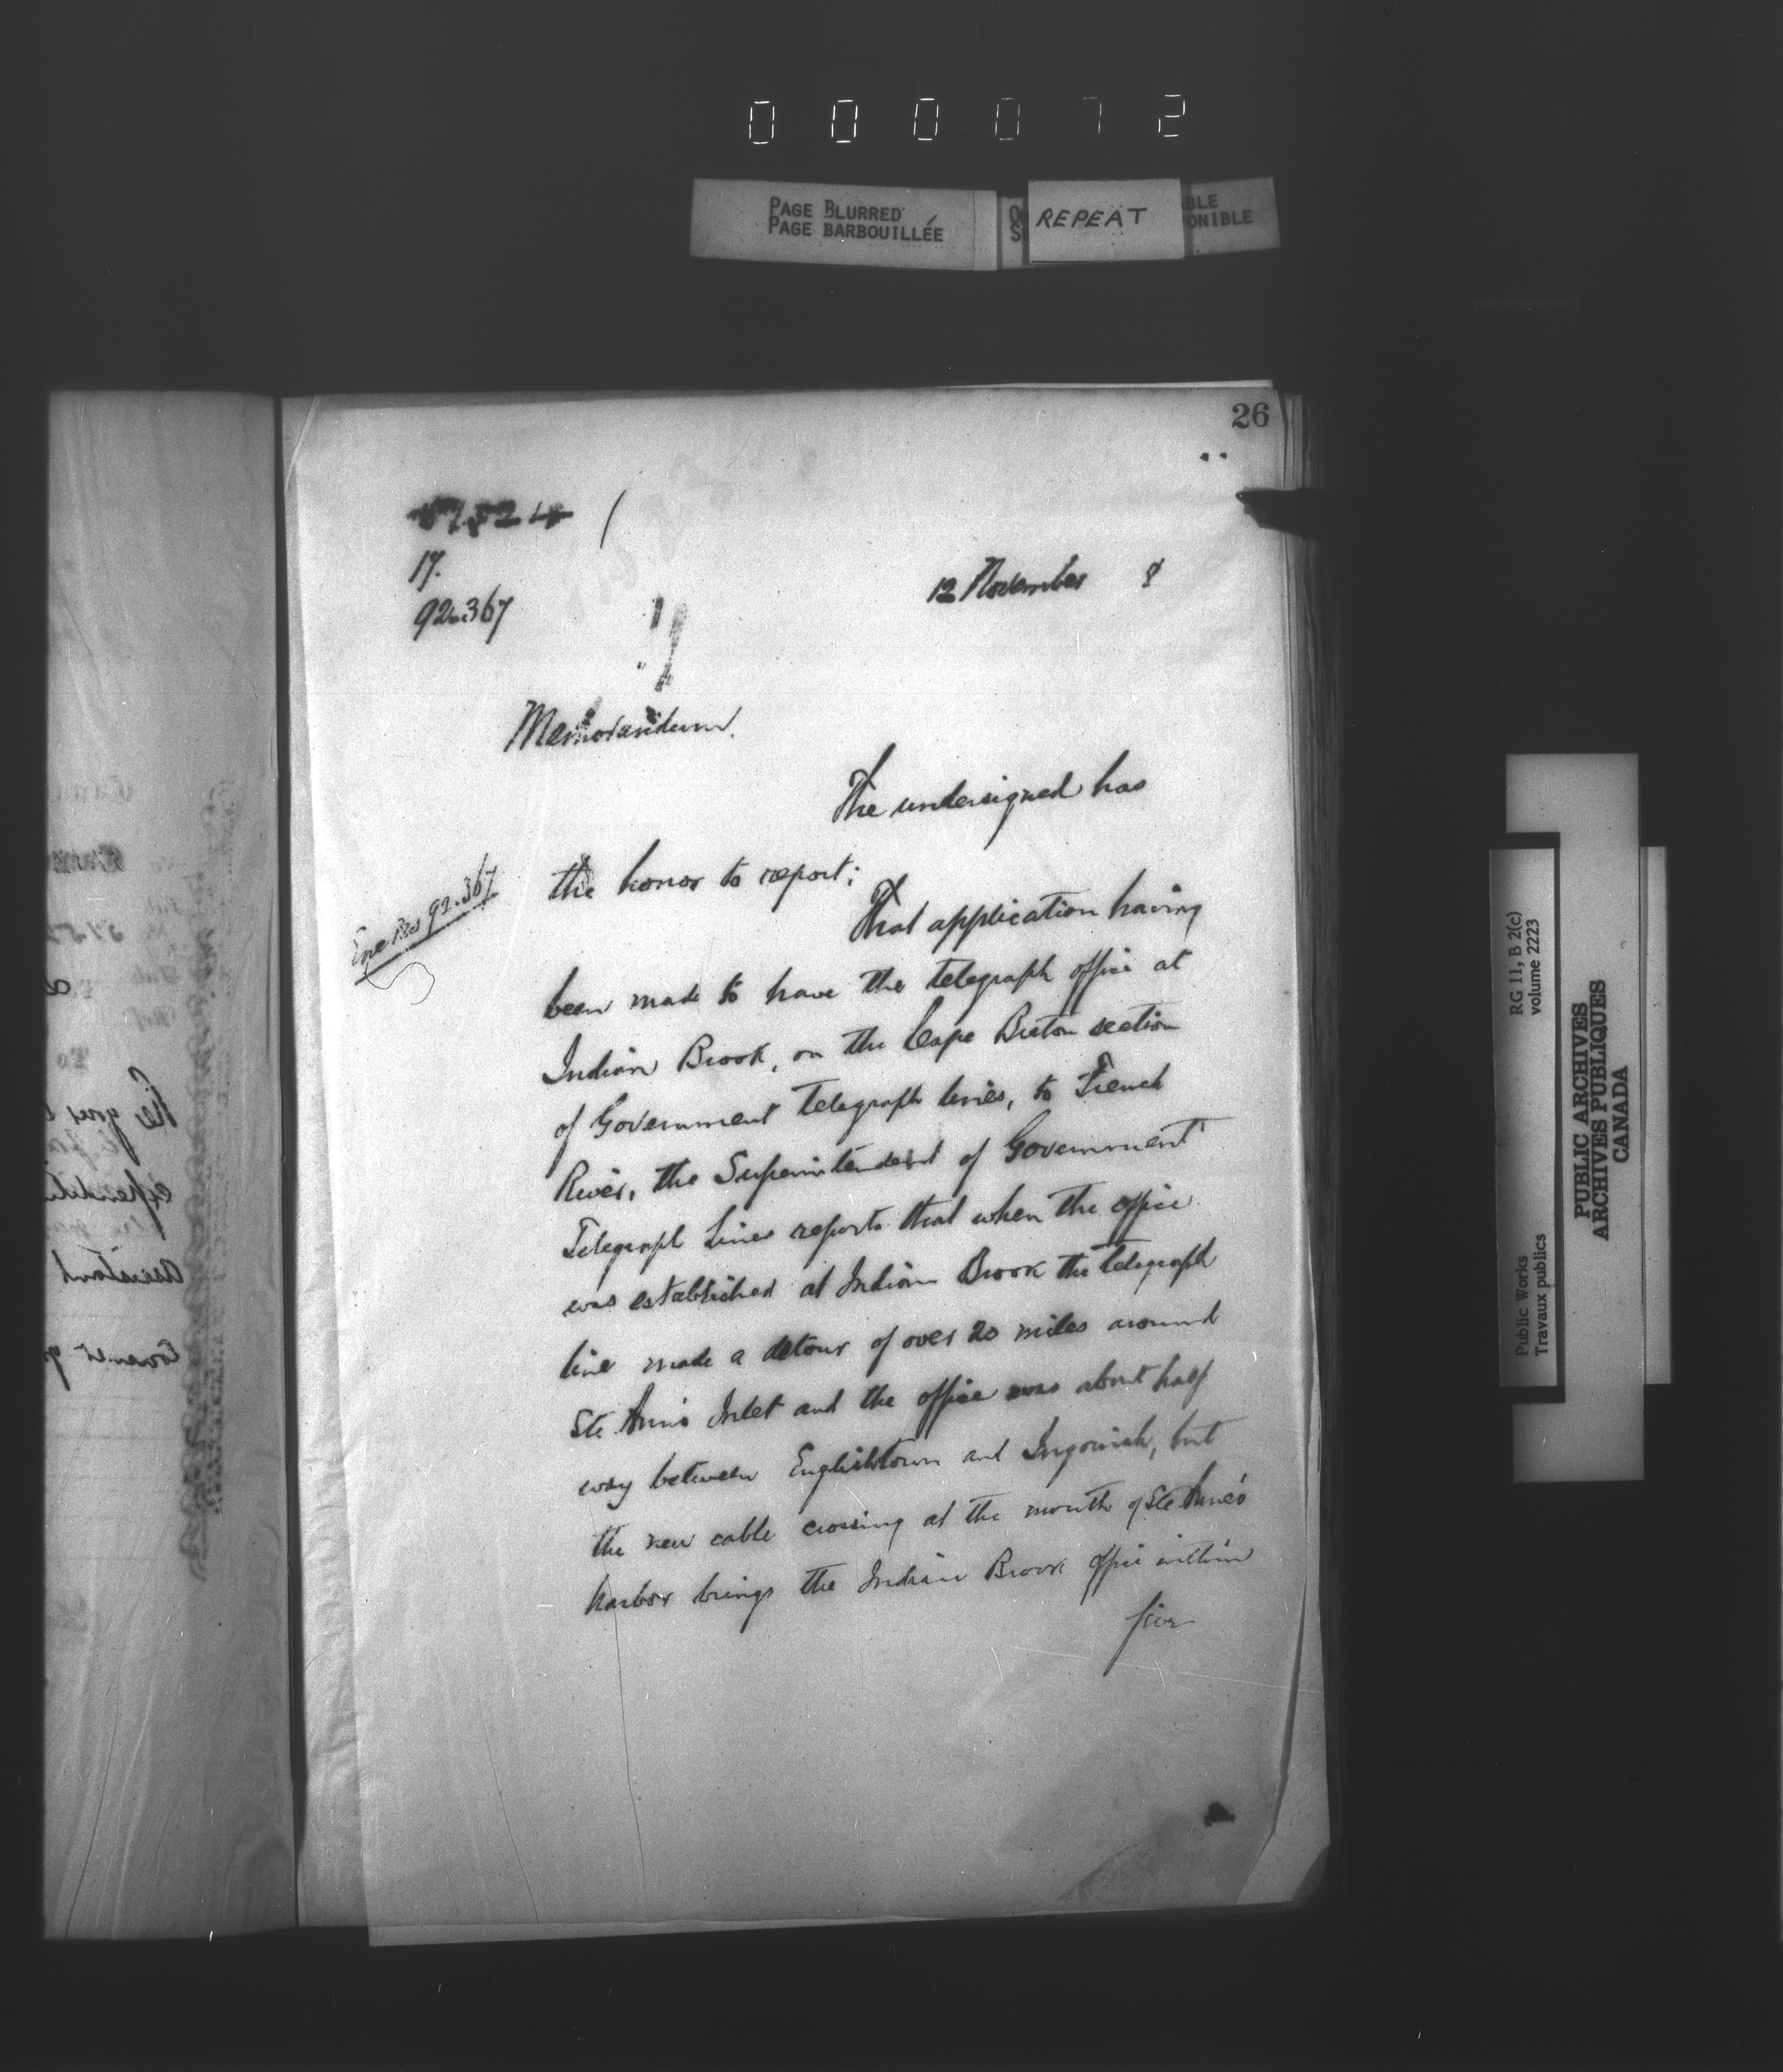 000072
PAGE BLURRED
PAGE BARBOUILLÉE
REPEAT
BLE
ONIBLE
26
17.
92.367
12 November 8
Memorandum.
The undersigned has
the honor to report:
92.367
That application having
been made to have the telegraph office at
Indian Brook, on the Cape Breton section
of Government telegraph lines, to French
River, the Superintendent of Government
Telegraph Lines reports that when the office
was established at Indian Brook the telegraph
line made a detour of over 20 miles around
Ste Ann's Inlet and the office was about half
way between Englishtown and Ingonish, but
the new cable crossing at the mouth of Ste Anne's
harbor brings the Indian Brook office within
five
RG 11, B 2(c)
volume 2223
Public Works
Travaux publics
PUBLIC ARCHIVES
ARCHIVES PUBLIQUES
CANADA